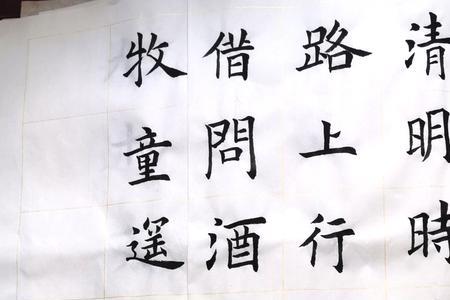 清明時
路上行
借問酒
牧童遥